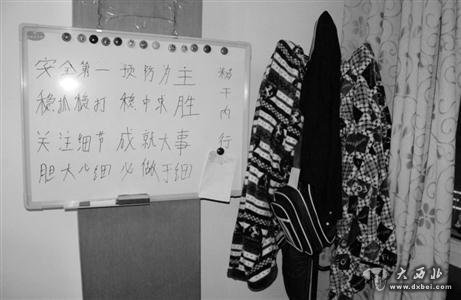 安全第一 预防为主
稳抓稳打 稳中求胜
关注细节 成就大事
胆大心细 必做于细
干内行
大西北
www.dxbei.com